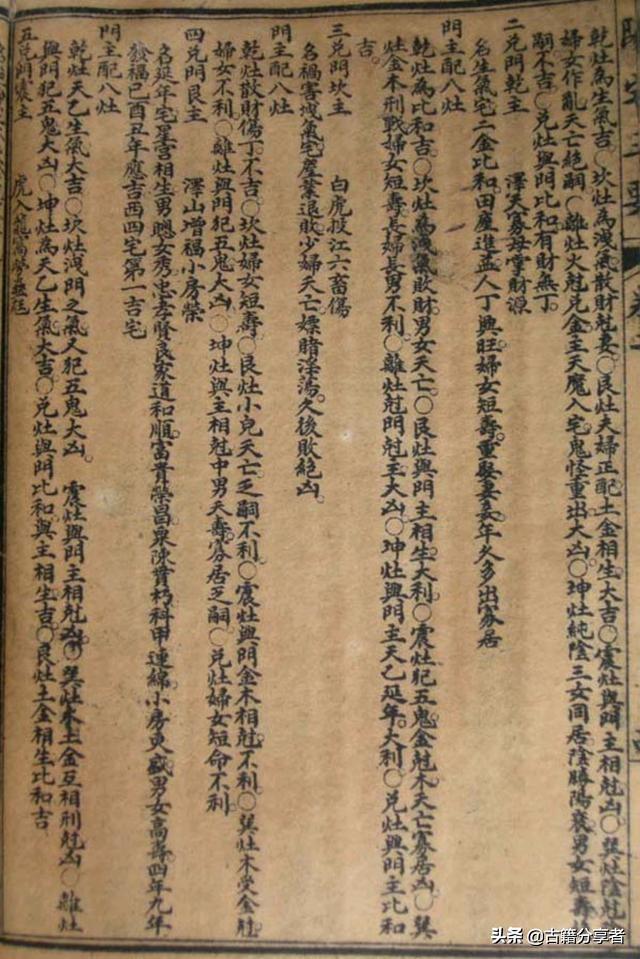 陽宅三要 卷二
乾灶為生氣吉〇坎灶為洩氣散財尅妻〇艮灶夫婦正配土金相生大吉〇震灶與門主相尅凶〇巽灶陰尅
婦女作亂夭亡絕嗣〇離灶火尅兌金主天魔入宅鬼怪重出大凶〇坤灶純陰三女同居陰勝陽衰男女短壽
嗣不吉〇兌灶與門比和有財無丁
二兌門乾主 澤天寡母掌財源
名生氣宅二金比和田產進益人丁興旺婦女短壽重娶妻妾年久多出寡居
門主配八灶
乾灶為比和吉〇坎灶為洩氣敗財男女夭亡〇艮灶與門主相生大利〇震灶犯五鬼金尅木夭亡寡居凶〇巽
灶金木刑戰婦女短壽長婦長男不利〇離灶尅門尅主大凶〇坤灶與門主天乙延年大利〇兌灶與門主比和
吉
三兌門坎主 白虎投江六畜傷
名禍害洩氣宅產業退敗少婦夭亡嫖賭淫蕩久後敗絕凶
門主配八灶
乾灶散財傷丁不吉〇坎灶婦女短壽〇艮灶小兒夭亡乏嗣不利〇震灶與門金木相尅不利〇巽灶木受金尅
婦女不利〇離灶與門犯五鬼大凶〇坤灶與主相尅中男夭壽寡居乏嗣〇兌灶婦女短命不利
四兌門艮主 澤山增福小房榮
名延年宅星宮相生男聰女秀忠孝賢良家道和順富貴榮昌粟陳貫朽科甲連綿小房更盛男女高壽四年九年
發福巳酉丑年應吉西四宅第一吉宅
門主配八灶
乾灶天乙生氣大吉〇坎灶洩門之氣又犯五鬼大凶 震灶與門主相尅凶〇巽灶木土金互相刑尅凶〇離灶
與門犯五鬼大凶〇坤灶為天乙生氣大吉〇兌灶與門比和與主相生吉〇艮灶土金相生比和吉
五兌門震主 虎入龍窩勞
头条 @古籍分享者